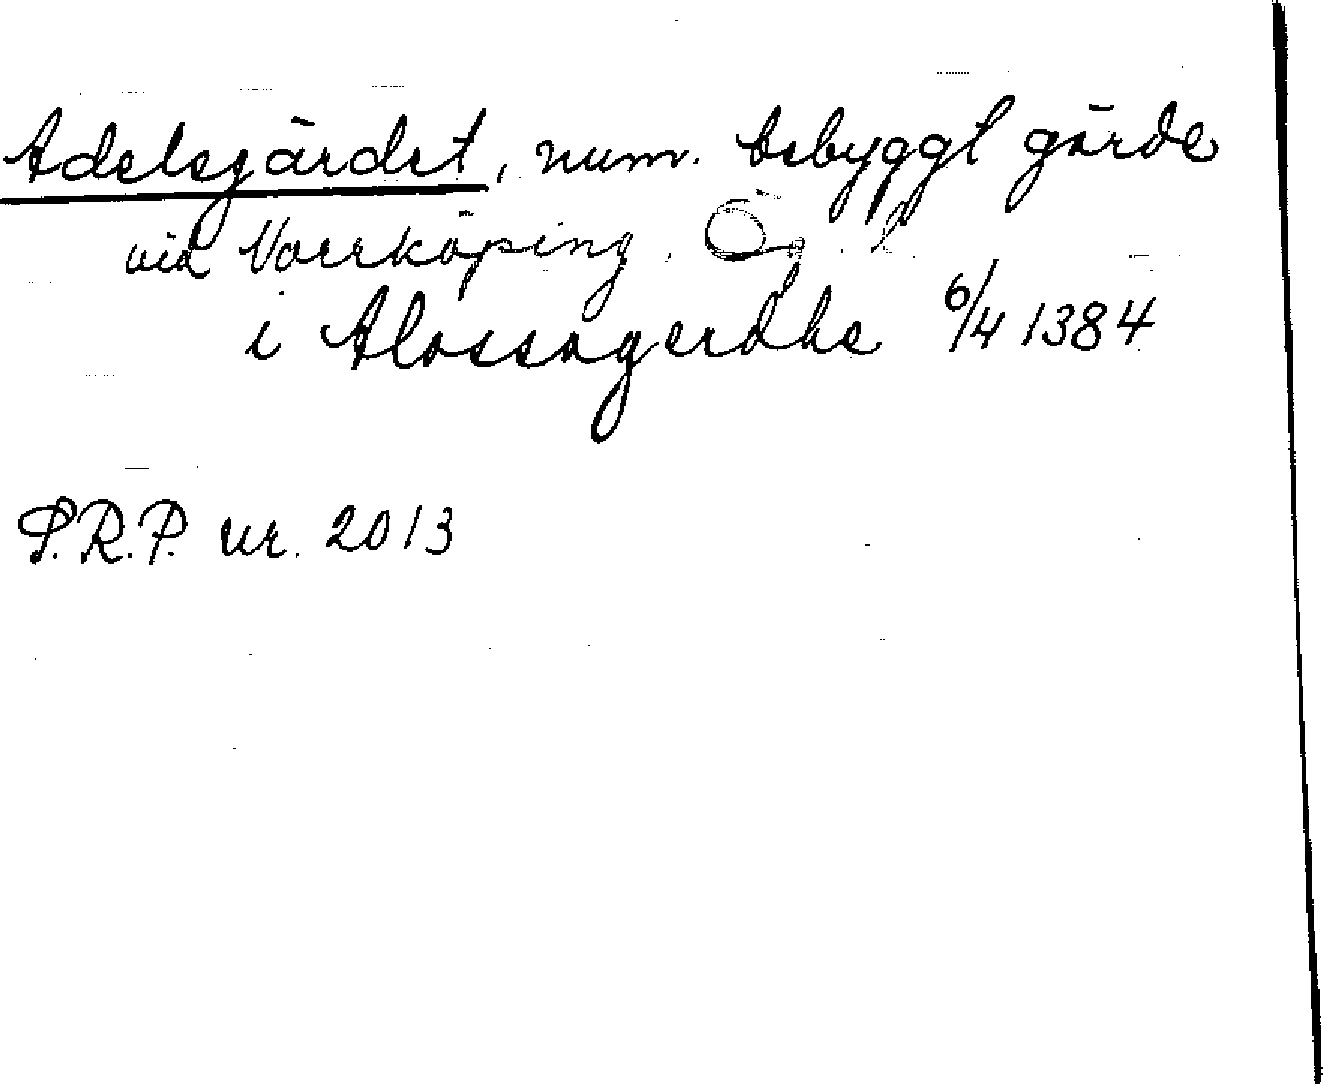 Adelsgärdet, num. bebyggt gärde
vid Norrköping. Ög. l.
i Alossagerdhe 6/4 1384
S.R.P. nr. 2013